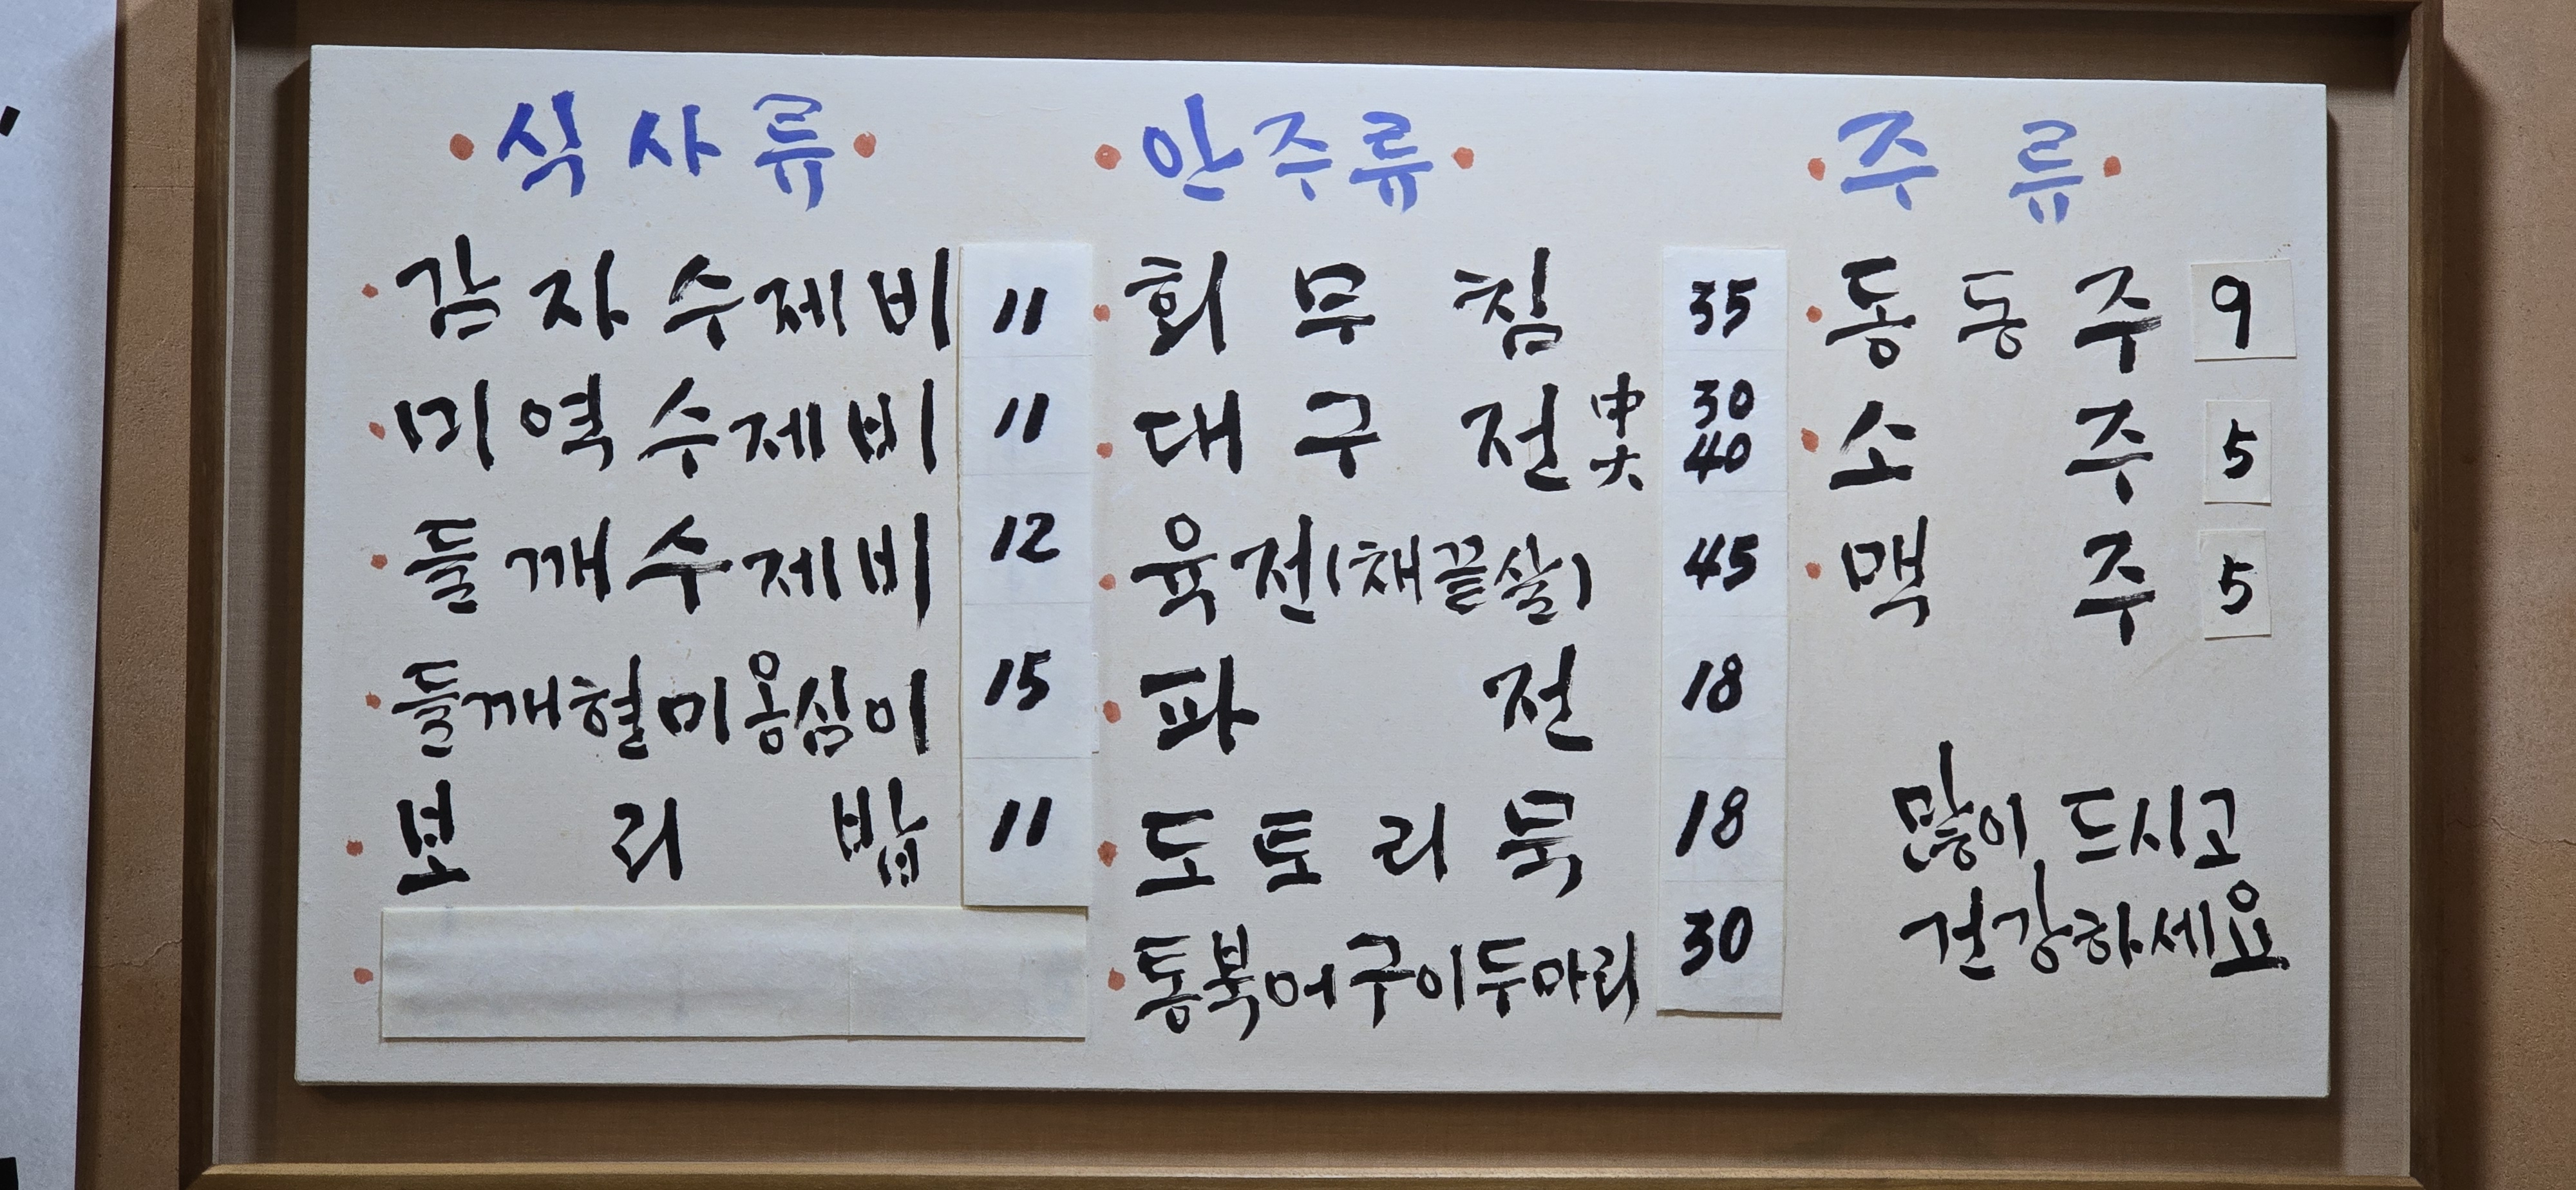 식사류
감자수제비 11
미역수제비 11
들깨수제비 12
들깨현미옹심이 15
보리밥 11
안주류
회무침 35
대구전 中 30
大 40
육전(채끝살) 45
파전 18
도토리묵 18
통북어구이두마리 30
주류
동동주 9
소주 5
맥주 5
많이 드시고
건강하세요